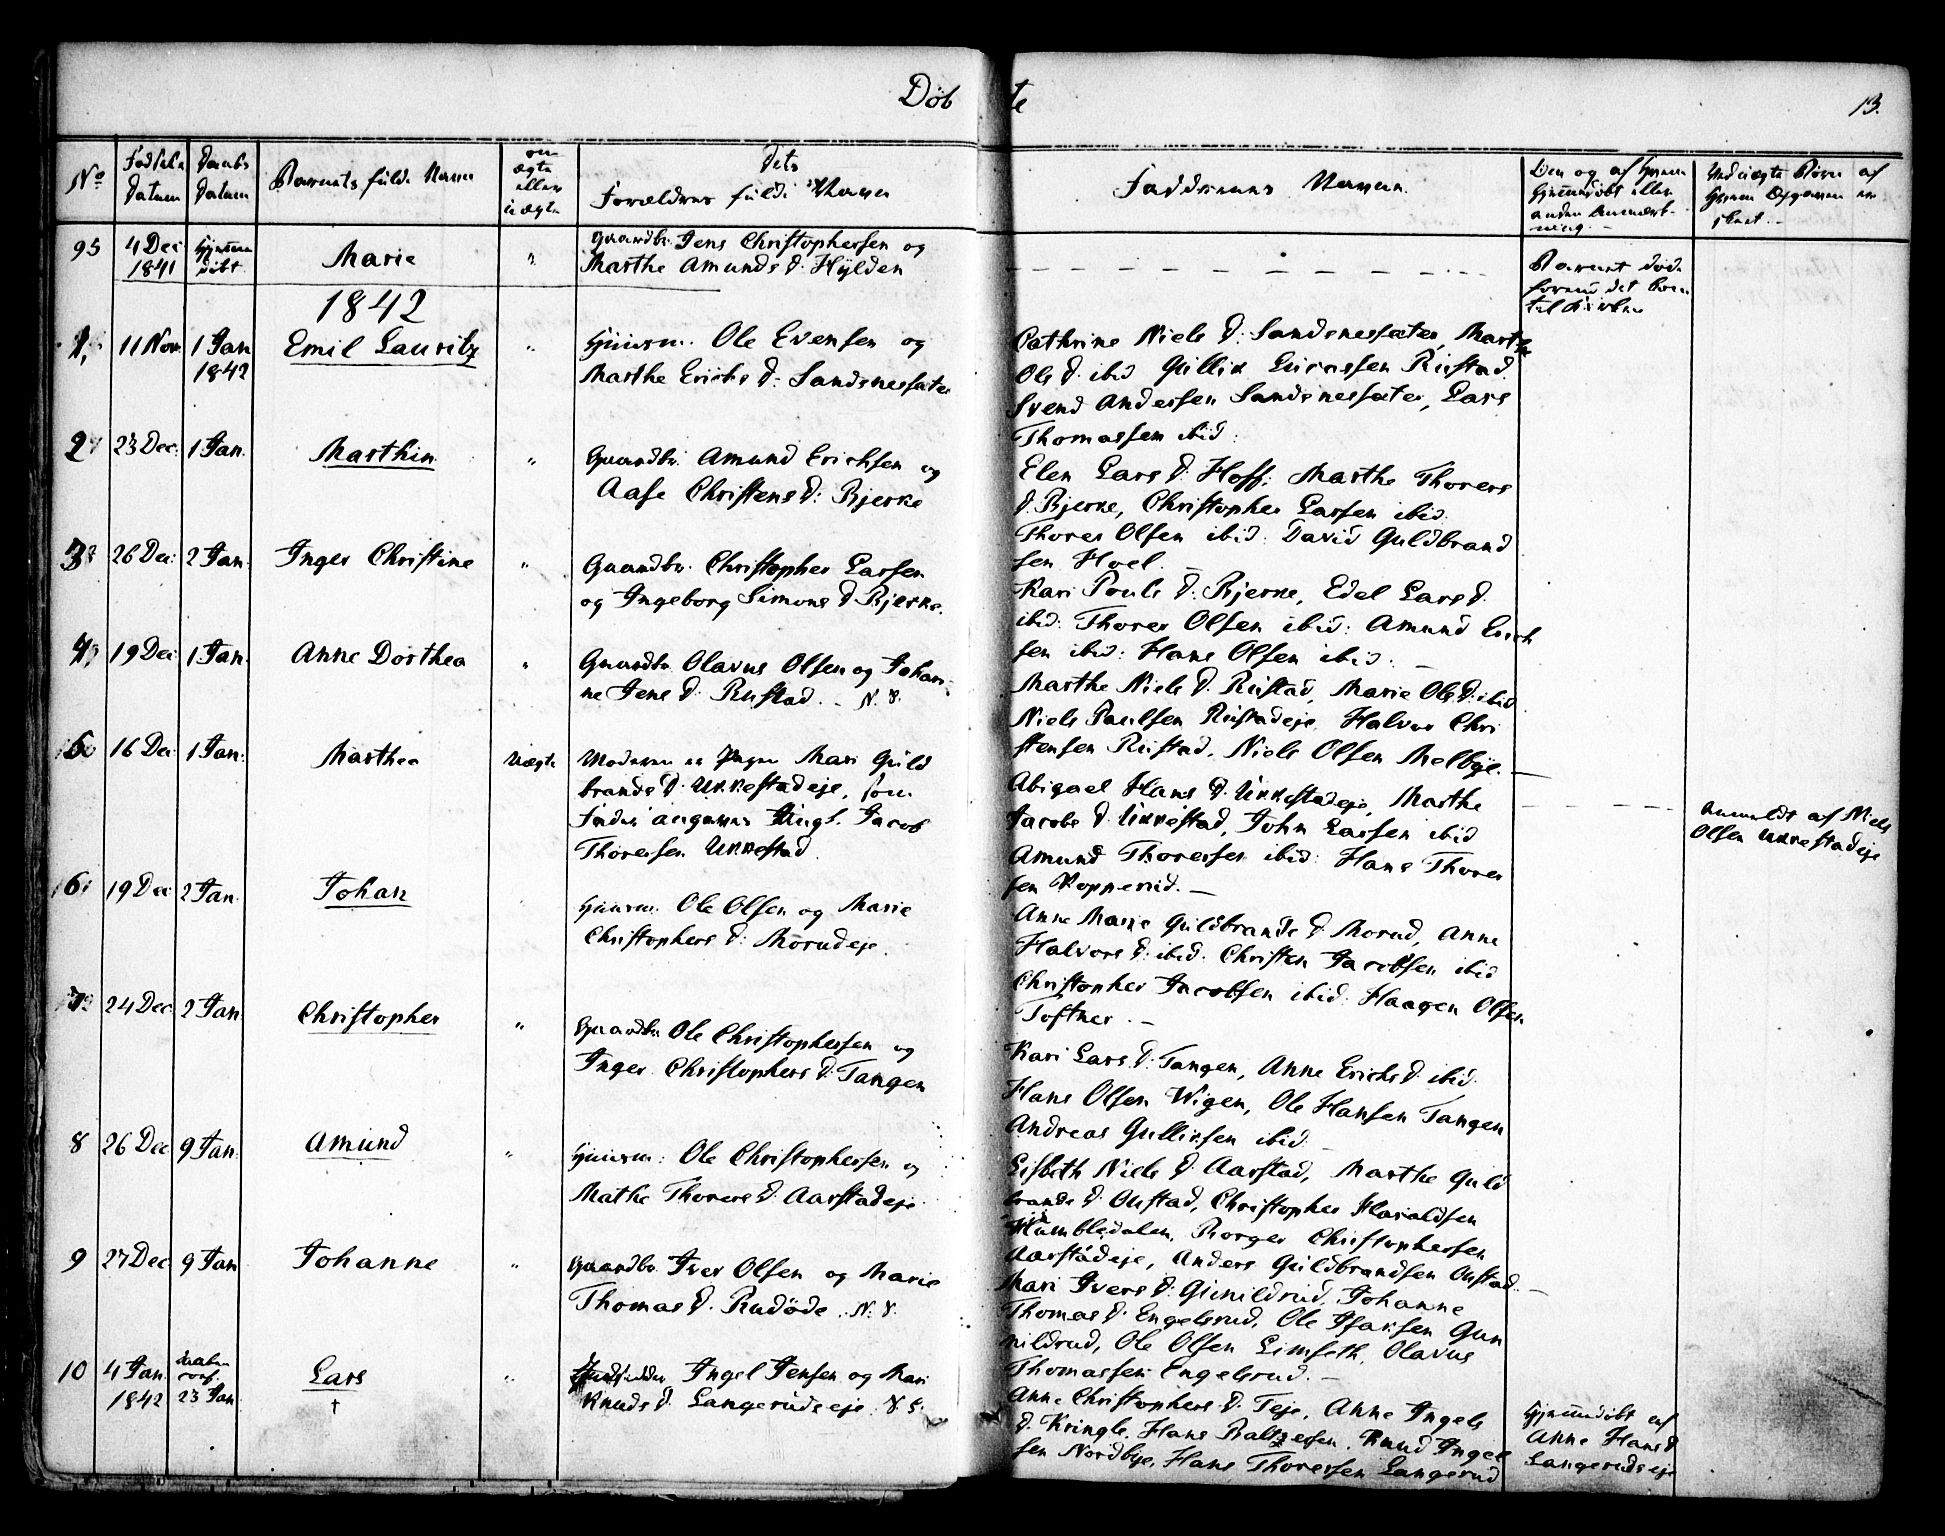 Döbte
13.
No
Fødsels Datum
Daabs Datum
Barnets fulde Navn
om ægte eller uægte
Dets Forældres fulde Navn
Faddernes Navne
Om og af hvem hjemmedöbt eller anden Anmærkning. -
Ved uægte Börn af hvem Opgaven er skeet. -
95
4 Dec 1841
hjemme döbt
Marie
"
Gaardbr. Jens Christophersen og
Marthe Amunds D. Hylden
Barnet döde
forend det kom
til Kirken
1842
1,
11 Nov
1 Jan 1842
Emil Lauritz
"
Huusm. Ole Evensen og
Marthe Erichs D: Sandnessæter
Cathrine Niels D: Sandnessæter, Marthe
Ols D. ibid Gullik Lucassen Rustad
Svend Andersen Sandenessæter, Lars
Thomassen ibid:
2
23 Dec.
1 Jan.
Marthin
"
Gaardbr. Amund Erichsen og
Aase Christens D: Bjerke
Elen Lars D. Hoff: Marthe Thorers
D. Bjerke, Christopher Larsen ibid.
Thorer Olsen ibid: David Guldbrand
sen Hoel. -
3
26 Dec.
2 Jan.
Inger Christine
"
Gaardbr. Christopher Larsen
og Ingeborg Simons D. Bjerke.
Kari Pouls D. Bjerke, Edel Lars D.
ibid: Thorer Olsen ibid: Amund Erich
sen ibid: Hans Olsen ibid. -
4
19 Dec
1 Jan.
Anne Dorthea
"
Gaardbr Olavus Olsen og Johan-
ne Jens D. Rustad. - N. S.
Marthe Niels D. Rustad, Marie Ols D: ibid
Niels Paulsen Rustadeje, Halvor Chri
stensen Rustad, Niels Olsen Melbye. -
5
16 Dec
1 Jan.
Marthea
Uægte
Moderen er Pigen Mari Guld
brands D. Ukkestadeje, som
Fader angives Ungk. Jacob
Thorersen Ukkestad.
Abigael Hans D. Ukkestadeje, Marthe
Jacobs D. Ukkestad, John Larsen ibid
Amund Thorersen ibid: Hans Thorer
sen Kopperud. -
Anmeldt af Niels
Olsen Ukkestadeje
6
19 Dec
2 Jan.
Johan
Huusm. Ole Olsen og Marie
Christophers D: Morudeje.
Anne Marie Guldbrands D. Morud, Anne
Halvors D: ibid. Christen Jacobsen ibid
Christopher Jacobsen ibid: Haagen Olsen
Toftner. -
7
24 Dec
2 Jan
Christopher
"
Gaardbr Ole Christophersen og
Inger Christophers D: Tangen
Kari Lars D. Tangen, Anne Erichs D. ibid.
Hans Olsen Wigen, Ole Hansen Tangen
Andreas Gulliksen ibid. -
8
26 Dec
9 Jan.
Amund
"
Huusm: Ole Christophersen og
Mathe Thorers D. Aarstadeje
Lisbeth Niels D. Aarstad, Marthe Guld
brands D. Onstad, Christopher Haraldsen
Humbledalen, Borger Christophersen
Aarstadeje, Anders Guldbrandsen Onstad. -
9
27 Dec
9 Jan
Johanne
"
Gaardbr. Iver Olsen og Marie
Thomas D. Rudöde. N. S.
Mari Ivers D. Gunildrud, Johanne
Thomas D. Engelsrud, Ole Isaksen Gun
nildrud, Ole Olsen Limseth, Olavus
Thomassen Engelsrud. -
10
4 Jan. 1842
23 Jan.
Lars
†
"
Ingel Jensen og Mari
Knuds D. Langerudseje.
Anne Christophers D. Teje, Anne Ingels
D. Kringle, Hans Baltzersen, Knud Ingel
sen Nordbye, Hans Thoresen Langerud
Hjemmedöbt af
Anne Hans D
Langerudseje